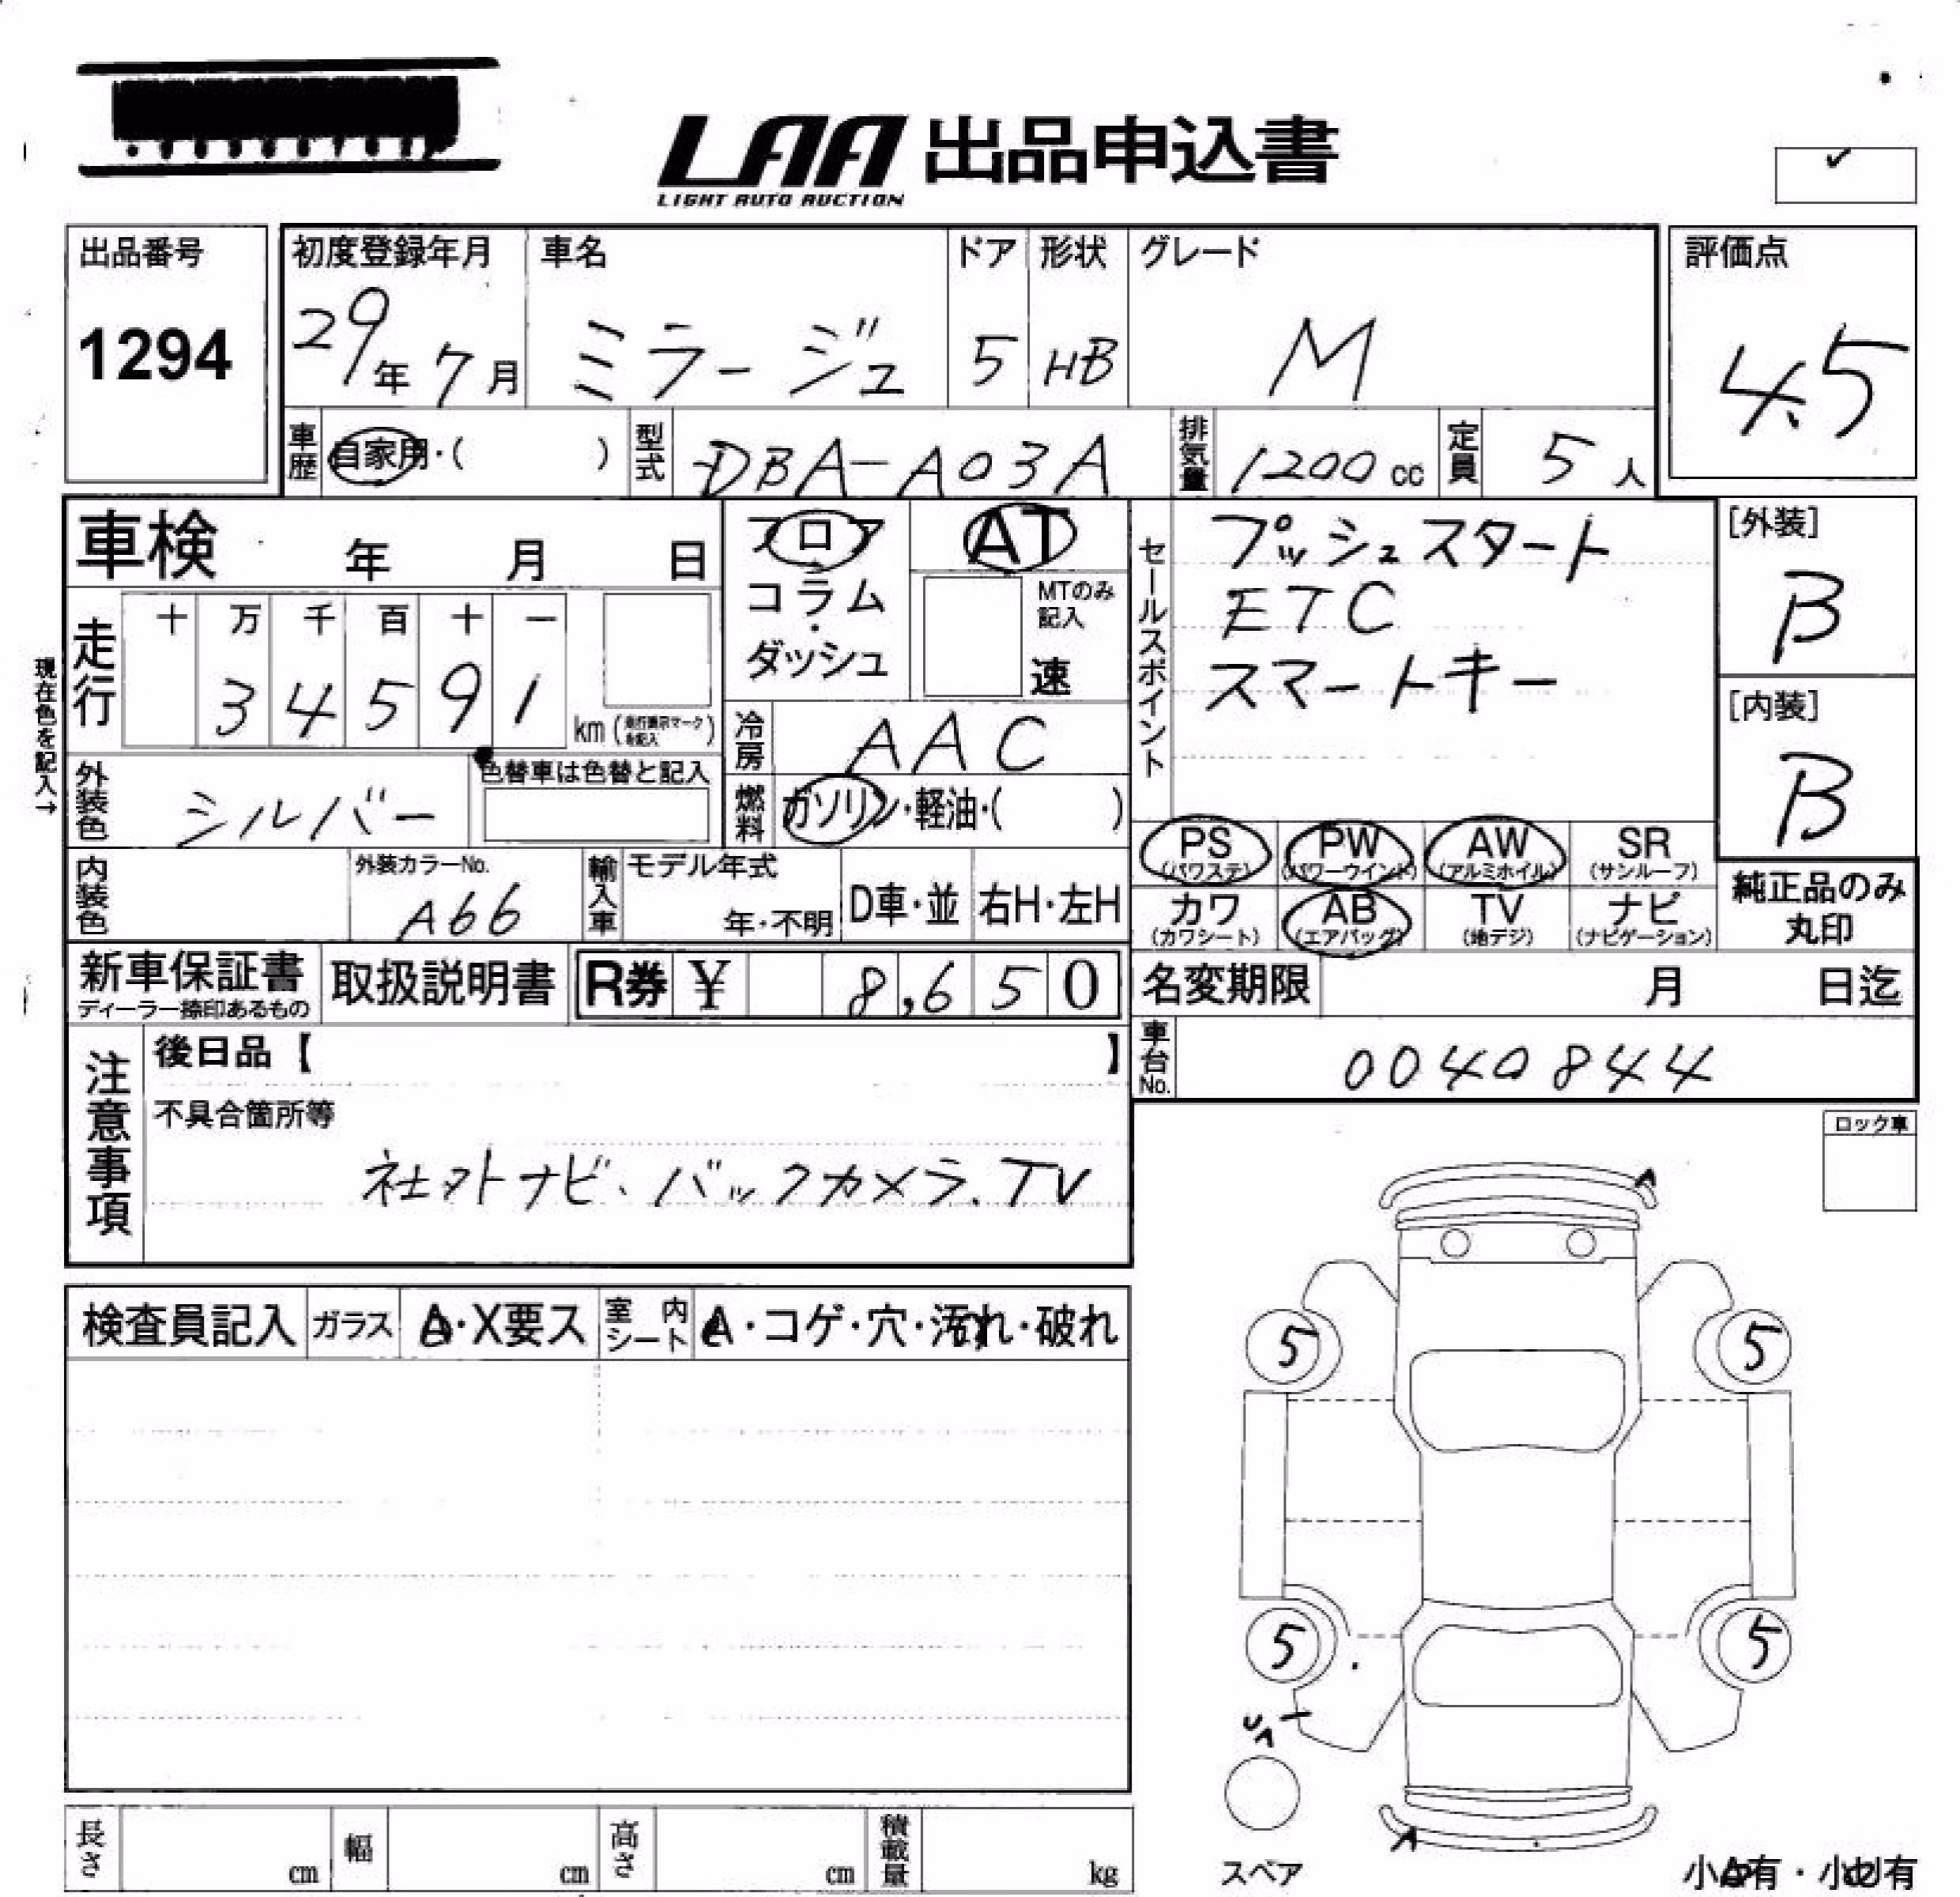 LAA 出品申込書
LIGHT AUTO AUCTION
出品番号
1294
初度登録年月
29年 7月
車名
ミラージュ
ドア
5
形状
HB
グレード
M
評価点
4.5
車歴 自家用・( )
型式 DBA-A03A
排気量 1200cc
定員 5人
車検 年 月 日
フロア
コラム
・
ダッシュ
AT
MTのみ
記入
速
セールスポイント
プッシュスタート
ETC
スマートキー
[外装]
B
[内装]
B
現在色を記入→
走行
十 万 千 百 十 一
3 4 5 9 1
km
冷房 AAC
外装色 シルバー
色替車は色替と記入
燃料 ガソリン・軽油・( )
PS (パワステ)
PW (パワーウインド)
AW (アルミホイル)
SR (サンルーフ)
カワ (カワシート)
AB (エアバッグ)
TV (地デジ)
ナビ (ナビゲーション)
純正品のみ
丸印
内装色
外装カラーNo.
A66
輸入車
モデル年式
年・不明
D車・並
右H・左H
新車保証書
ディーラー捺印あるもの
取扱説明書
R券 ¥ 8,650
名変期限 月 日迄
車台No. 0040844
注意事項
後日品【 】
不具合箇所等
社外ナビ、バックカメラ、TV
ロック車
検査員記入
ガラス
A・X要ス
室内シート
A・コゲ・穴・汚れ・破れ
A
5 5
5 5
A
スペア
長さ cm
幅 cm
高さ cm
積載量 kg
小A有・小U有